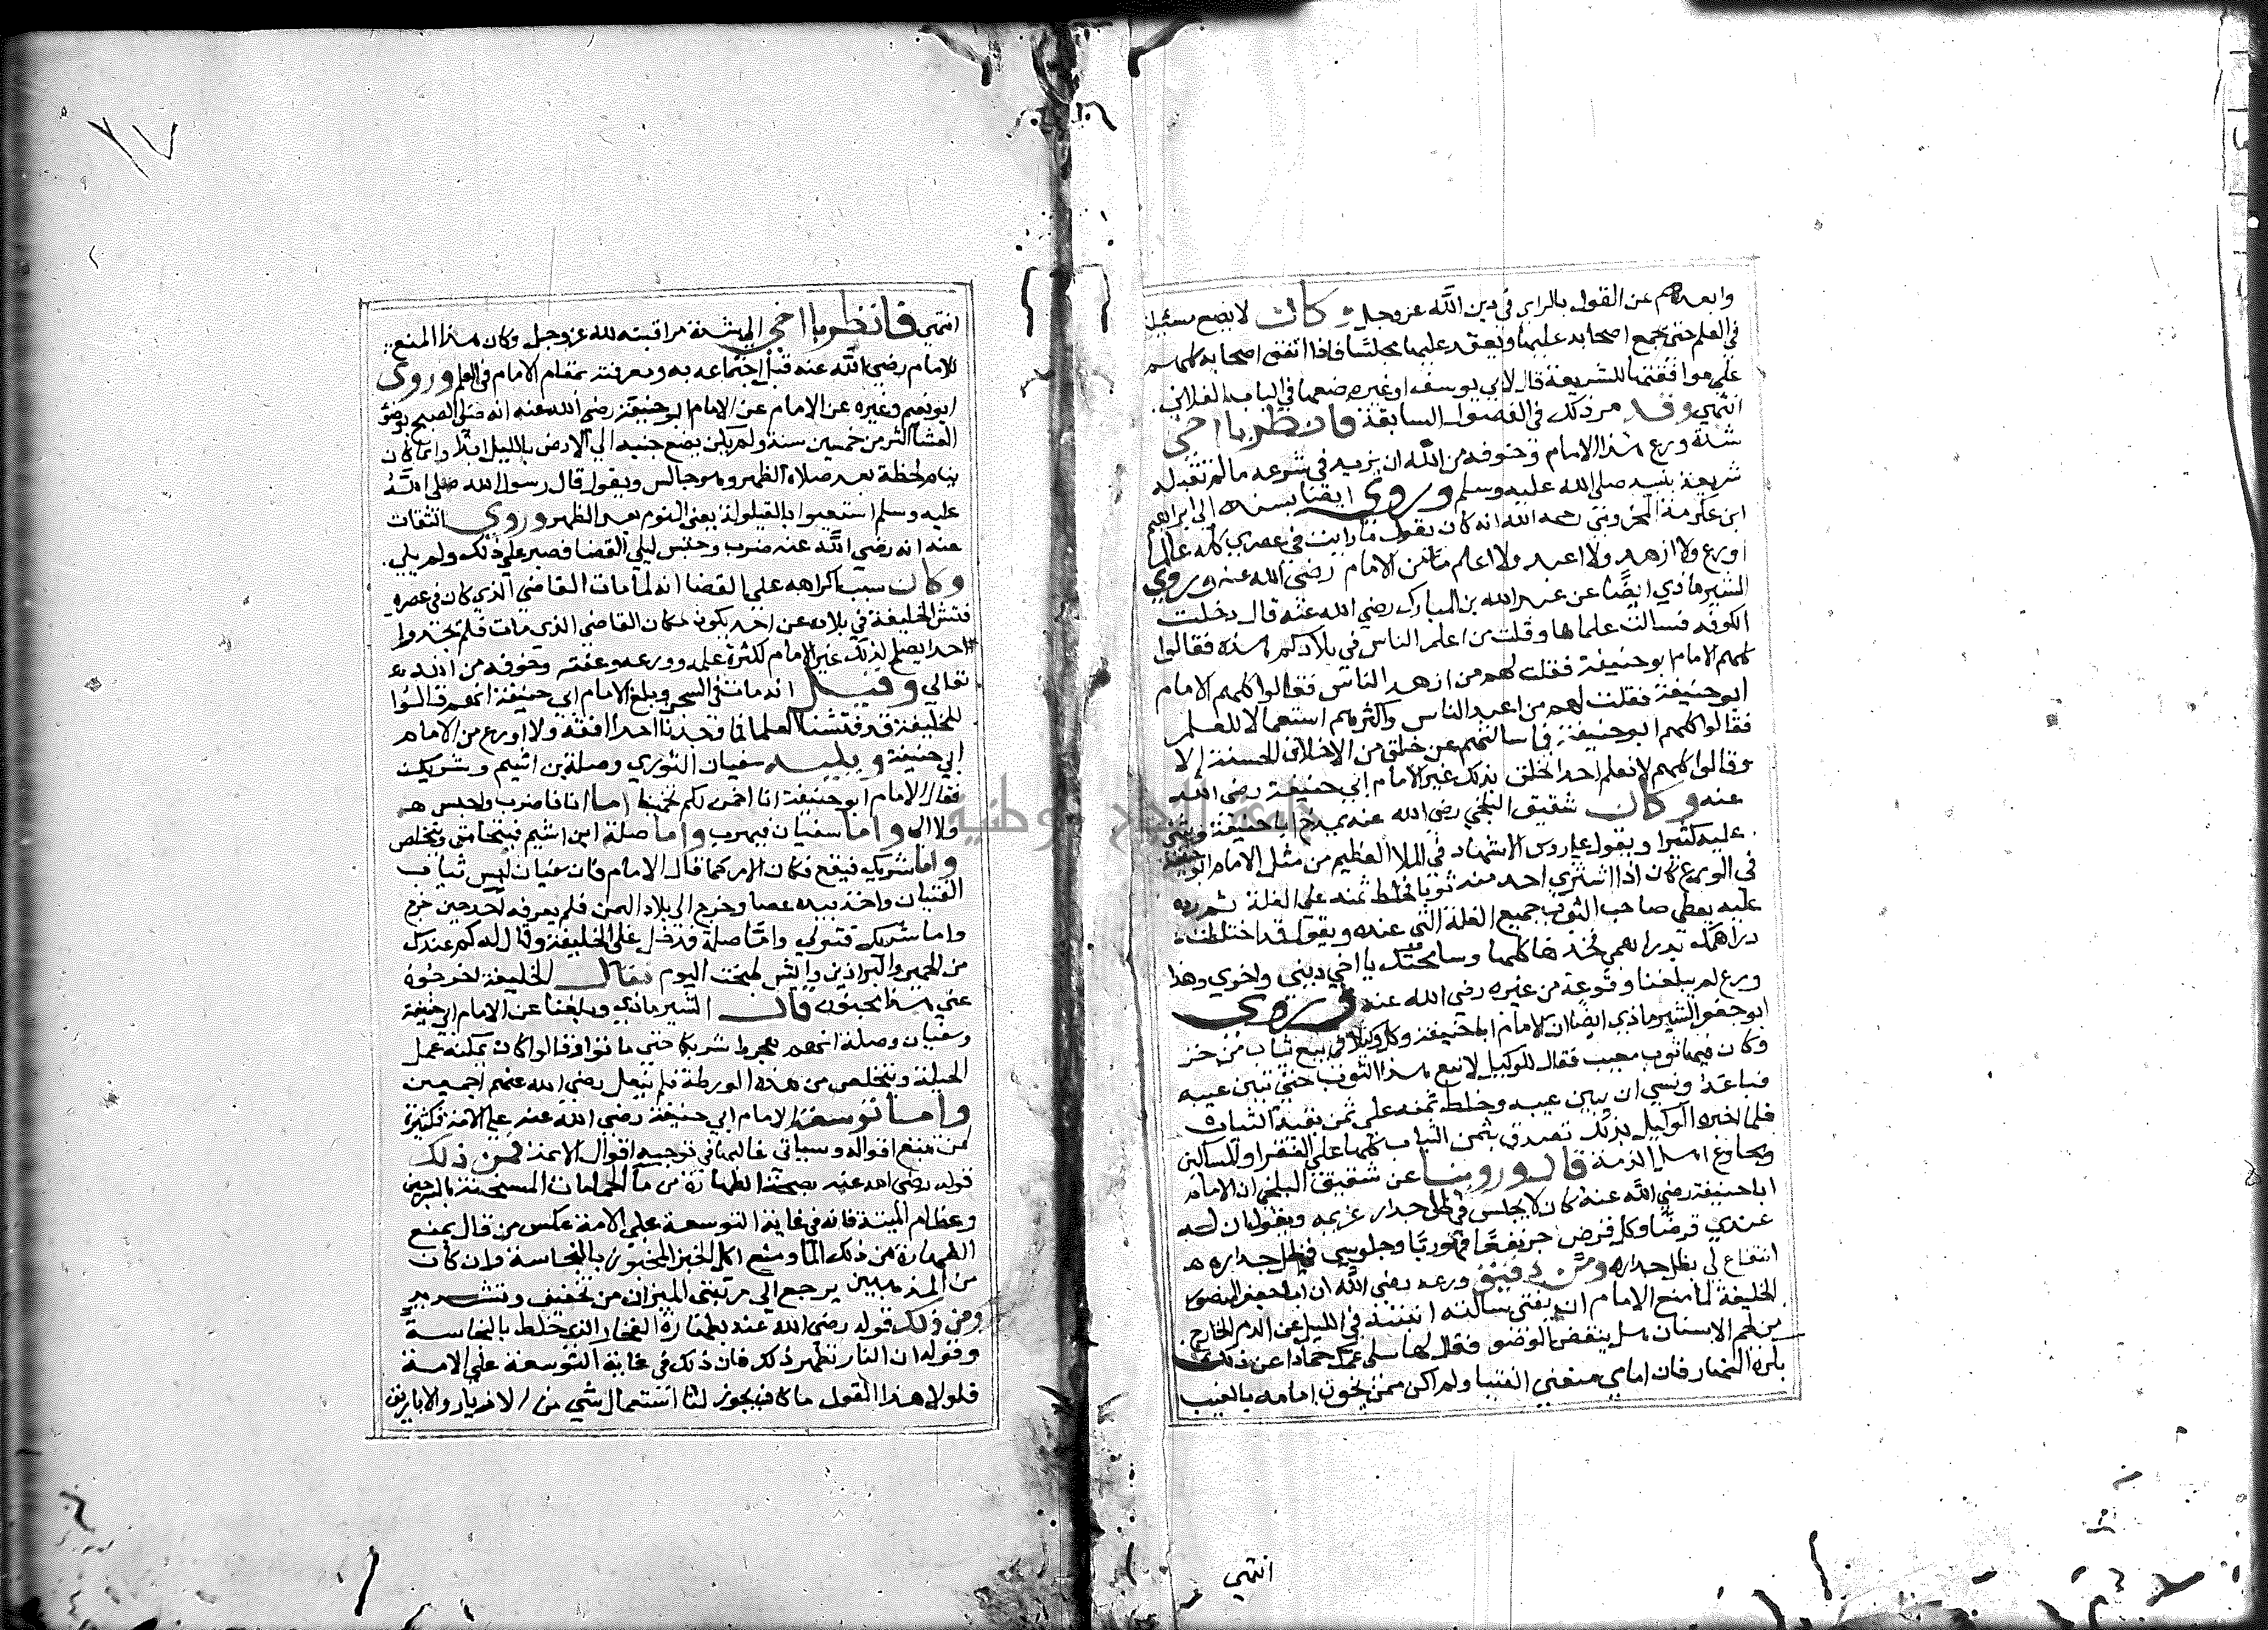 وابعدهم عن القول بالراي في دين الله عز وجل وكان لا يضع مسئلة
في العلم حتي يجمع اصحابه عليها ويعقد عليها مجلسا فاذا اتفق اصحابه كلهم
علي موافقتها للشريعة قال لابي يوسف او غيره ضعها في الباب الفلاني
انتهي وقد مر ذلك في الفصول السابقة فانظر يا اخي
شدة ورع هذا الامام وخوفه من الله ان يزيد في شرعه ما لم تقبله
شريعة نبيه صلي الله عليه وسلم وروي ايضا بسنده الي ابراهيم
ابن عكرمة المخزومي رحمه الله انه كان يقول ما رايت في عصري كله عالما
اورع ولا ازهد ولا اعبد ولا اعلم من الامام رضي الله عنه وروي
الشيرماذي ايضا عن عبد الله بن المبارك رضي الله عنه قال دخلت
الكوفه فسالت علماها وقلت من اعلم الناس في بلادكم هذه فقالوا
كلهم الامام ابو حنيفة فقلت لهم من ازهد الناس فقالوا كلهم الامام
ابو حنيفة فقلت لهم من اعبد الناس واكثرهم استعمالا للعلم
فقالوا كلهم ابو حنيفة فما سالتهم عن خلق من الاخلاق الحسنة الا
وقالوا كلهم لا نعلم احدا تخلق بذلك غير الامام ابي حنيفة رضي الله
عنه وكان شقيق البلخي رضي الله عنه يمدح ابا حنيفة ويثني
عليه كثيرا ويقول علي روس الاشهاد في الملا العظيم من مثل الامام ابو حنيفة
في الورع كان اذا اشتري احد منه ثوبا فخلط ثمنه علي الغلة ثم رده
عليه يعطي صاحب الثوب جميع الغلة التي عنده ويقول قد اختلطت
دراهمك بدراهمي فخذها كلها وسامحتك يا اخي ديني واخري وهذا
ورع لم يبلغنا وقوعه من غيره رضي الله عنه وروي
ابو جعفر الشيرماذي ايضا ان الامام ابا حنيفة وكل وكيلا في بيع ثياب من خز
وكان فيها ثوب معيب فقال للوكيل لا تبع هذا الثوب حتي تبين عيبه
فباعه ونسي ان يبين عيبه وخلط ثمنه علي ثمن بقية الثياب
فلما اخبره الوكيل بذلك تصدق بثمن الثياب كلها علي الفقرا والمساكين
ومحاويج اهل الذمة قال وروينا عن شقيق البلخي ان الامام
ابا حنيفة رضي الله عنه كان لا يجلس في ظل جدار غريمه ويقول ان له
عندي قرضا وكل قرض جر نفعا فهو ربا وجلوسي في ظل جداره
انتفاع لي بظل جداره ومن دقيق ورعه رضي الله ان ابا جعفر المنصور
الخليفة لما منع الامام ان يفتي سالته ابنته في الليل عن الدم الخارج
من لحم الاسنان هل ينقض الوضو فقال لها سلي عمك حمادا عن ذلك
بكرة النهار فان امامي منعني الفتيا ولم اكن ممن يخون امامه بالغيب
انتهي
١٧
انتهي فانظر يا اخي الي شدة مراقبته لله عز وجل وكان هذا المنع
للامام رضي الله عنه قبل اجتماعه به ومعرفته بمقام الامام في العلم وروي
ابو نعيم وغيره عن الامام عن الامام ابو حنيفة رضي الله عنه انه صلي الصبح بوضو
العشا اكثر من خمسين سنة ولم يكن يضع جنبه الي الارض بالليل ابدا وانما كان
ينام لحظة بعد صلاة الظهر وهو جالس ويقول قال رسول الله صلي الله
عليه وسلم استعينوا بالقيلولة يعني النوم بعد الظهر وروي الثقات
عنه انه رضي الله عنه ضرب وحبس ليلي القضا فصبر علي ذلك ولم يلي
وكان سبب اكراهه علي القضا انه لما مات القاضي الذي كان في عصره
فتش الخليفة في بلاده عن احد يكون مكان القاضي الذي مات فلم يجدوا
احدا يصلح لذلك غير الامام لكثرة علمه وورعه وعفته وخوفه من الله
تعالي وقيل انه مات في السجن وبلغ الامام ابي حنيفة انهم قالوا
للخليفة قد فتشنا العلما فما وجدنا احدا افقه ولا اورع من الامام
ابي حنيفة ويليه سفيان الثوري وصلة بن اشيم وشريك
فقال الامام ابو حنيفة انا اخمن لكم تخمينا اما انا فاضرب واحبس
ولا الي واما سفيان فيهرب واما صلة ابن اشيم فيتحامق ويتخلص
واما شريك فيقع فكان الامر كما قال الامام فان سفيان لبس ثياب
الفتيان واخذ بيده عصا وخرج الي بلاد اليمن فلم يعرفه احد حين خرج
واما شريك فتولي واما صلة فدخل علي الخليفة وقال له كم عندك
من الحمير والبراذين وايش طبخت اليوم فقال الخليفة اخرجوه
عني هذا مجنون قال الشيرماذي وبلغنا عن الامام ابي حنيفة
وسفيان وصلة انهم هجروا شريكا حتي ماتوا وقالوا كان يمكنه عمل
الحيلة ويتخلص من هذه الورطة فلم يفعل رضي الله عنهم اجمعين
واما توسعة الامام ابي حنيفة رضي الله عنه علي الامة فكثيرة
لمن تتبع اقواله وسياتي غالبها في توجيه اقوال الائمة فمن ذلك
قوله رضي الله عنه بصحة الطهارة من ما الحمامات المسخنة بالسرجين
وعظام الميتة فانه في غاية التوسعة علي الامة عكس من قال بمنع
الطهارة من ذلك الما ومنع اكل الخبز المخبوز بالنجاسة وان كان
من المذهبين يرجع الي مرتبتي الميزان من تخفيف وتشديد
ومن ذلك قوله رضي الله عنه بطهارة الفخار الذي خلط بالنجاسة
وقوله ان النار تطهر ذلك فان ذلك في غاية التوسعة علي الامة
فلولا هذا القول ما كان يجوز لنا استعمال شي من الازيار والاباريق